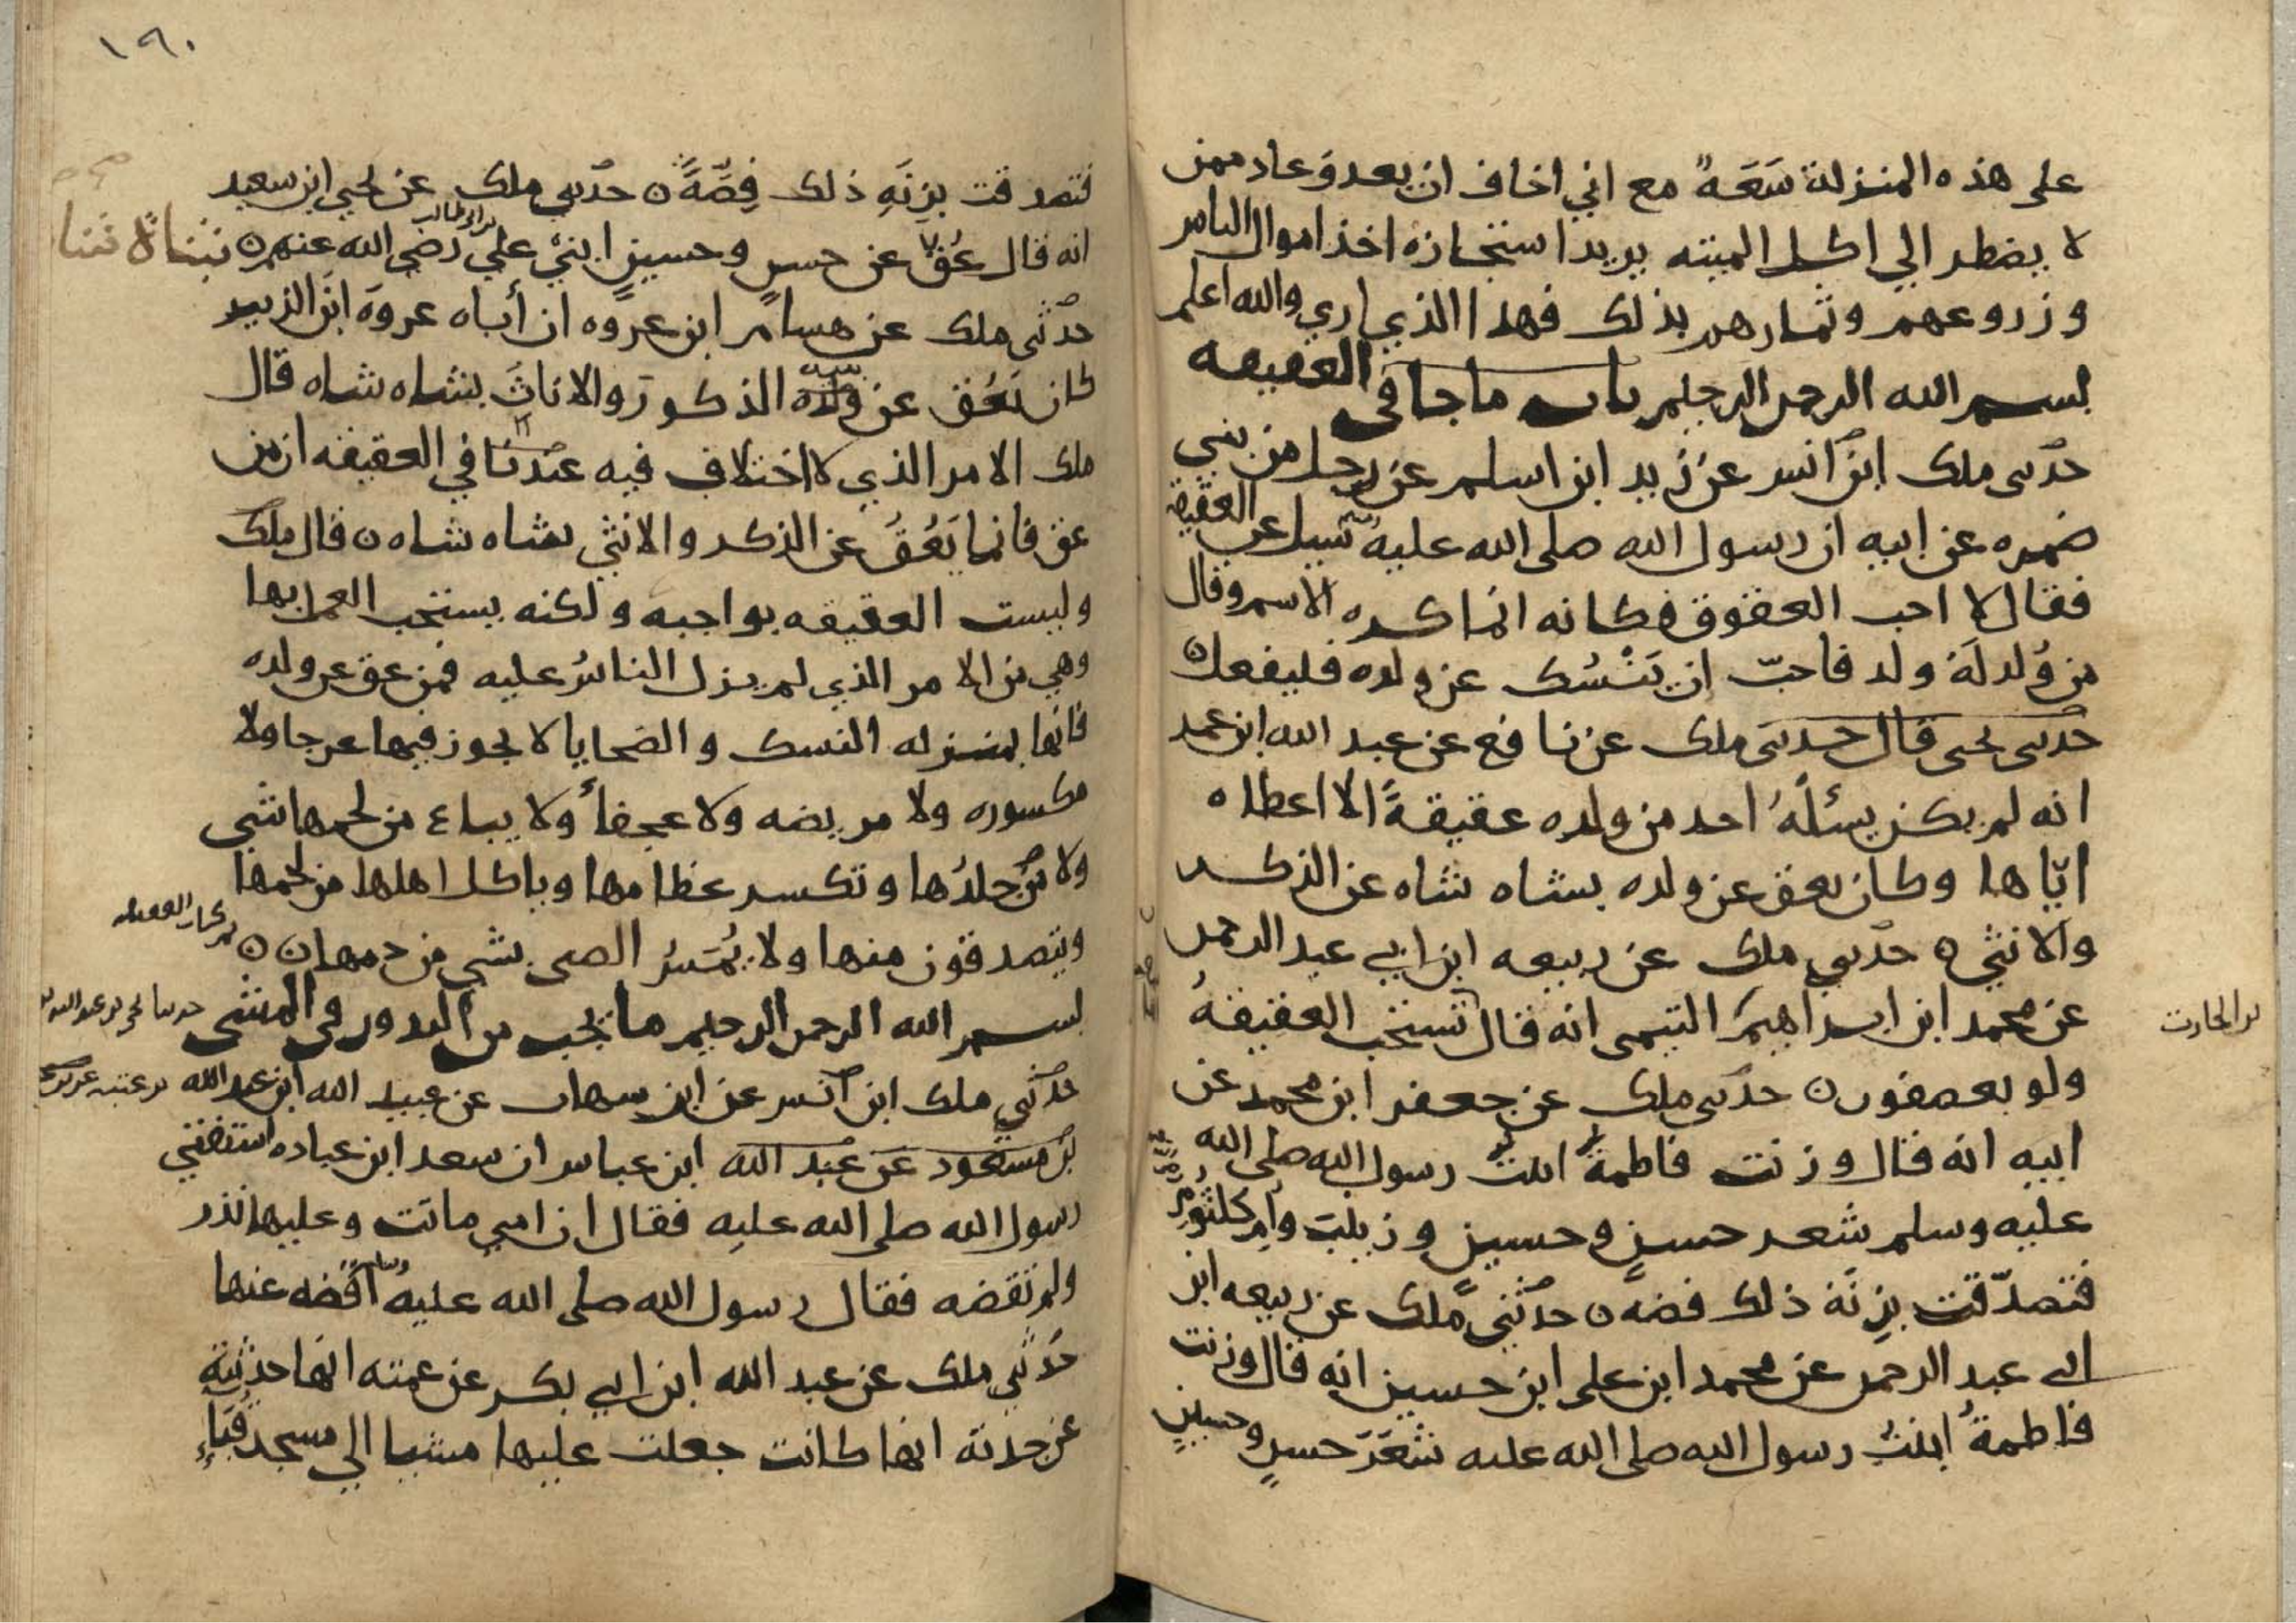 على هذه المنزلة سَعَةً مع اني اخاف ان يعدوَ عاد ممن
لا يضطر الي اكل الميته يريد استجازه اخذ اموال الناس
وزروعهم وثمارهم بذلك فهذا الذي اري والله اعلم
بسم الله الرحمن الرحيم باب ما جا في العقيقه
حدثني ملك ابن انس عن زيد ابن اسلم عن رجل من بني
ضمره عن ابيه ان رسول الله صلى الله عليه سيل عن العقيقة
فقال لا احب العقوق فكانه انما كره الاسم وقال
من وُلد لَهُ ولد فاحبّ ان يَنْسُك عن ولده فليفعل ن
حدثني يحيى قال حدثني ملك عن نافع عن عبد الله ابن عمر
انه لم يكن يسئلُهُ احد من ولده عقيقةً الا اعطاه
ايّاها وكان يعق عن ولده بشاه شاه عن الذكر
والانثي ن حدثني ملك عن ربيعه ابن ابي عبد الرحمن
عن محمد ابن ابراهيم التيمي انه قال تستحب العقيقةُ
بن الحارث
ولو بعصفور ن حدثني ملك عن جعفر ابن محمد عن
ابيه انه قال وزنت فاطمةُ ابنتُ رسول الله صلى الله
عليه وسلم شعر حسنٍ وحسينٍ وزينبَ وام كلثومٍ
فتصدّقت بِزِنَة ذلك فضه ن حدثني ملك عن ربيعه ابن
ابي عبد الرحمن عن محمد ابن علي ابن حسين انه قال وزنت
فاطمةُ ابنتُ رسول الله صلى الله عليه شعَرَ حسنٍ وحسينٍ
١٩٠
فتصدقت بِزِنَهِ ذلك فِضَّةً ن حدثني ملك عن يحيي ابن سعيد
انه قال عُقَّ عن حسن وحسينٍ ابنَي علي بن ابي طالب رضي الله عنهم ن بشاةً شاة
حدثني ملك عن هشام ابن عروه ان أباه عروهَ ابنَ الزبير
كان يَعُق عن بنيه الذكور والاناثِ بشاه شاه قال
ملك الامر الذي لا اختلاف فيه عندنا في العقيقه ان من
عق فانما يَعُقُ عن الذكر والانثي بشاه شاه ن قال ملك
وليست العقيقه بواجبه ولكنه يستحب العمل بها
وهي من الامر الذي لم يزل الناسُ عليه فمن عق عن ولده
فانها بمنزله النسك والضحايا لا يجوز فيها عرجا ولا
مكسوره ولا مريضه ولا عجفاً ولا يباع من لحمها شي
ولا من جلدُها وتكسر عظامها وياكل اهلها من لحمها
ويتصدقون منها ولا يُمَسُ الصبي بشي من دمها ن ن
بسم الله الرحمن الرحيم ما يجب من النذور في المشي
حدثني ملك ابن انس عن ابن شهاب عن عبيد الله ابن عبد الله بن عتبه
بن مسعود عن عبد الله ابن عباس ان سعد ابن عباده استفتي
رسول الله صلى الله عليه فقال ان امي ماتت وعليها نذر
ولم تقضه فقال رسول الله صلى الله عليه وسلم اقضه عنها
حدثني ملك عن عبد الله ابن ابي بكر عن عمته انها حدثته
عن جدته انها كانت جعلت عليها مشيا الي مسجد قُبَاءٍ